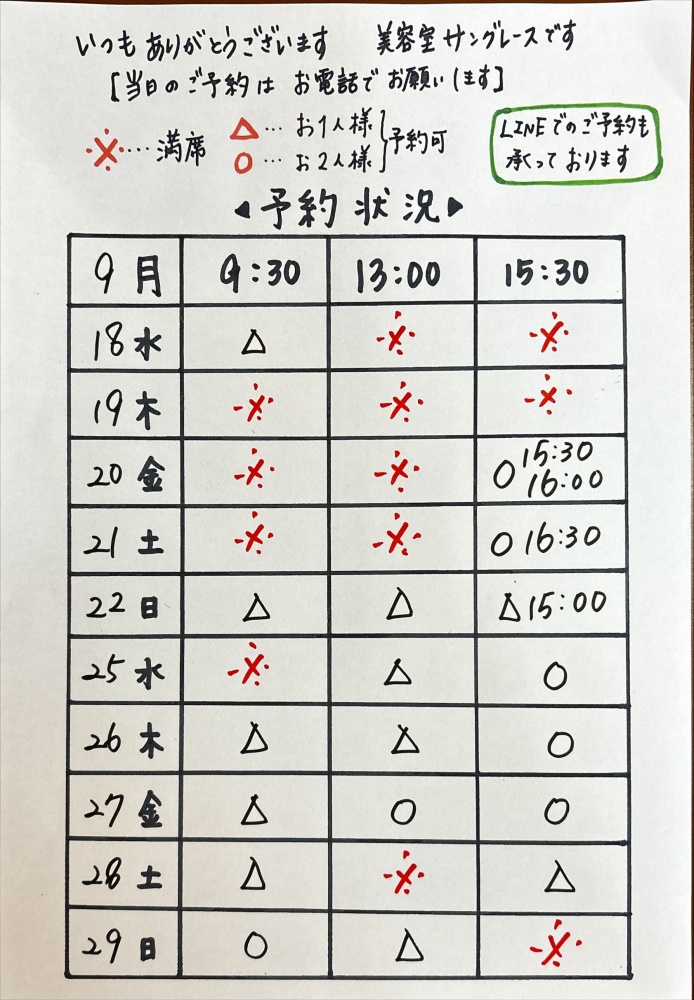 いつもありがとうございます 美容室サングレースです
[当日のご予約はお電話でお願いします]
※…満席
△…お1人様
○…お2人様
予約可
LINEでのご予約も
承っております
◀予約状況▶
9月 9:30 13:00 15:30
18水 △ ※ ※
19木 ※ ※ ※
20金 ※ ※ ○15:30 16:00
21土 ※ ※ ○16:30
22日 △ △ △15:00
25水 ※ △ ○
26木 △ △ ○
27金 △ ○ ○
28土 △ ※ △
29日 ○ △ ※